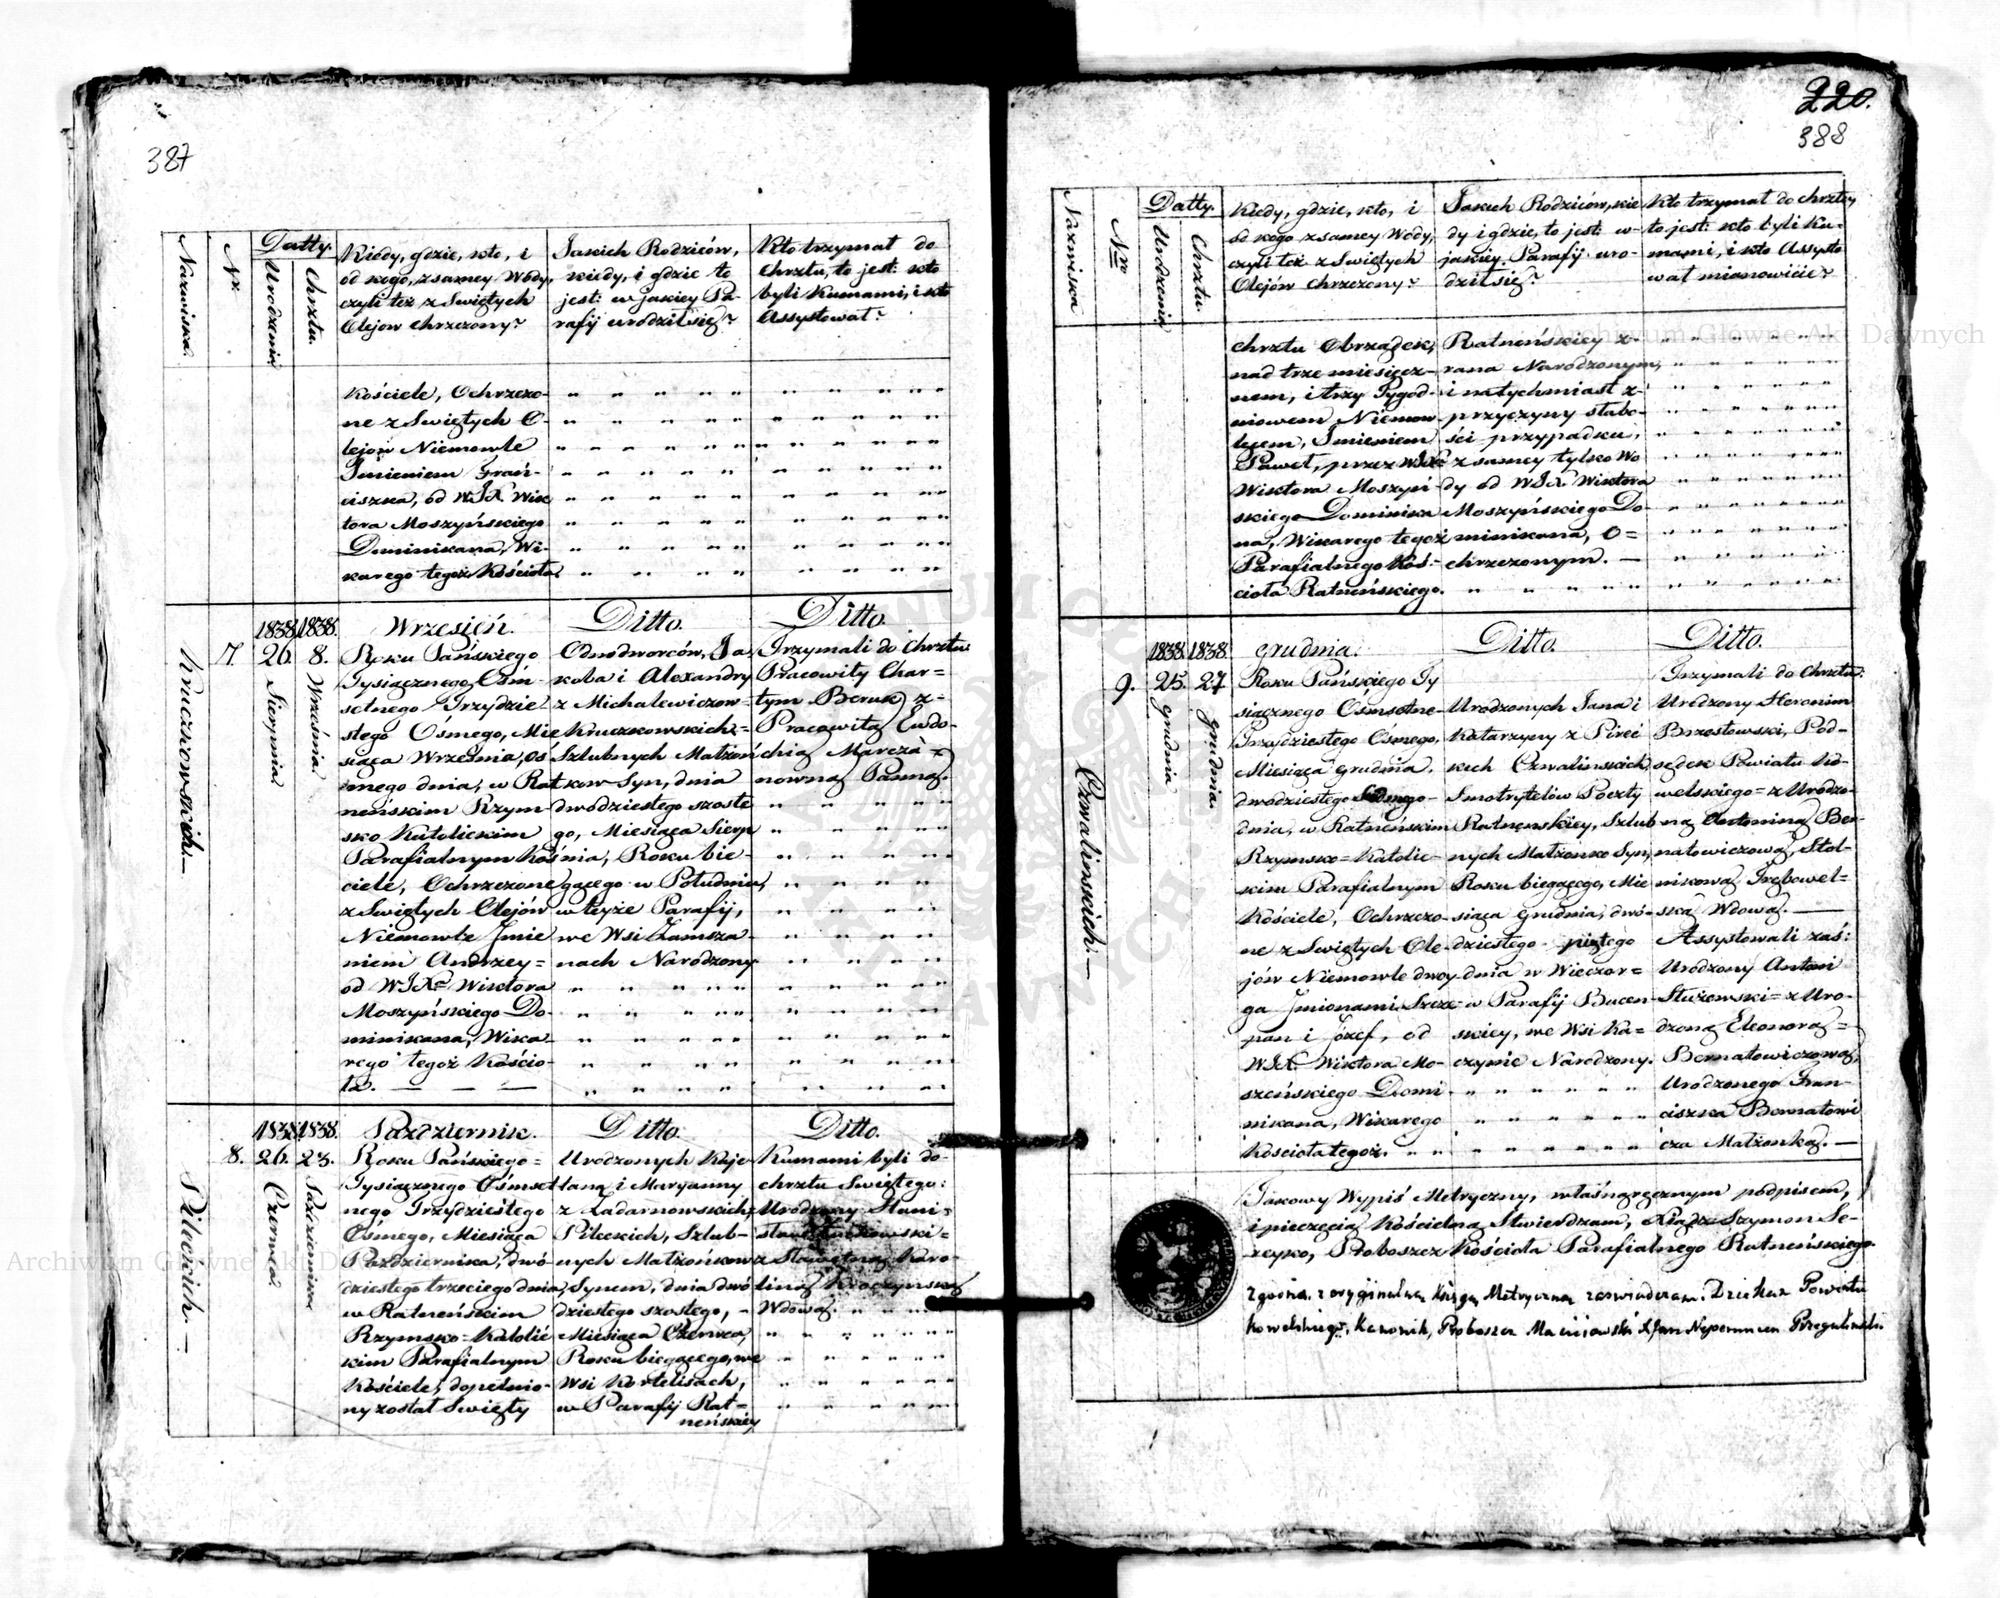 387
Nazwiska.
Nr
Datty.
Urodzenia
Chrztu.
Kiedy, gdzie, kto, i
od kogo, z samey Wody,
czyli też z Swiętych
Olejow chrzczony?
Jakich Rodziców,
kiedy, i gdzie to
jest: w jakiey Pa-
rafij urodził się?
Kto trzymał do
chrztu, to jest: kto
byli Kumami, i kto
Assystował?
Kościele, Ochrzczo-
ne z Swiętych O-
lejów Niemowle
Jmieniem Fran-
ciszka, od WJX Wik
tora Moszyńskiego
Dominikana, Wi-
karego tegoż Kościoła
Kruczkowskich.—
7.
1838.
26.
Sierpnia
1838.
8.
Września
Wrzesień.
Roku Pańskiego
Tysiącznego Ośm-
setnego Trzydzie
stego Ósmego, Mie
siąca Września, ós
mego dnia, w Rat
neńskim Rzym
sko Katolickim
Parafialnym Koś
ciele, Ochrzczone
z Swiętych Olejów
Niemowle Jmie
niem Andrzey=
od WJXa Wiktora
Moszyńskiego Do-
minikana, Wika-
rego tegoż Kościo-
ła. — — —
Ditto.
Odnodworców, Ja
koba i Alexandry
z Michalewiczow-
Kruczkowskich=
Szlubnych Małżon
kow Syn, dnia
dwódziestego szoste
go, Miesiąca Sierp
nia, Roku bie-
gącego w Południu,
w teyże Parafij,
we Wsi Zamsza-
nach Narodzony
Ditto.
Trzymali do Chrztu
Pracowity Char=
tym Beruk z-
Pracowitą Eudo-
chią Marcza=
nowną Panną.
Pileckich.—
8.
1838.
26.
Czerwca
1838.
23.
Pazdziernika
Pazdziernik.
Roku Pańskiego=
Tysiącznego Ośmset
nego Trzydziestego
Ósmego, Miesiąca
Pazdziernika, dwó-
dziestego trzeciego dnia,
w Ratneńskim
Rzymsko=Katolic
kim Parafialnym
Kościele, dopełnio-
ny został Swięty
Ditto.
Urodzonych Kaje-
tana i Maryanny
z Zadarnowskich-
Pileckich, Szlub-
nych Małżonkow
Synem, dnia dwó
dziestego szostego, -
Miesiąca Czerwca,
Roku biegącego, we
Wsi Kortelisach,
w Parafij Rat=
neńskiey
Ditto.
Kumami byli do-
chrztu Swiętego:
Urodzony Stani-
z Sławetną Karo-
liną
Wdową.
220.
388
Nazwiska
Nro
Datty.
Urodzenia
Chrztu.
Kiedy, gdzie, kto, i
od kogo z samey Wody,
czyli też z Swiętych
Olejów chrzczony?
Jakich Rodziców, kie
dy i gdzie, to jest: w-
jakiey Parafij uro-
dził się?
Kto trzymał do chrztu,
to jest: kto byli Ku-
mami, i kto Assysto
wał mianowicie?
chrztu Obrządek,
nad trze miesięcz-
nem, i trzy Tygod-
niowem Niemow-
lęcem, Jmieniem
Paweł, przez WJXa
Wiktora Moszyń-
skiego Dominika
na, Wikarego tegoż
Parafialnego Koś-
cioła Ratneńskiego.
Ratneńskiey z-
rana Narodzonym,
i natychmiast z-
przyczyny słabo-
ści przypadku,
z samey tylko Wo
dy od WJX Wiktora
Moszyńskiego Do-
minikana, O=
chrzczonym. —
Czwalinskich.—
9.
1838.
25.
grudnia
1838.
27
grudnia.
grudnia.
Roku Pańskiego Ty
siącznego Ośmsetne-
Trzydziestego Osmego,
Miesiąca grudnia,
dwodziestego Siódmego-
dnia, w Ratneńskim
Rzymsko=Katolic-
kim Parafialnym
Kościele, Ochrzczo-
ne z Swiętych Ole-
jów Niemowle dwoy-
ga Jmionami Szcze-
pan i Józef, od
WJX. Wiktora Mo-
szeńskiego Domi
nikana, Wikarego
Kościoła tegoż.
Ditto.
Urodzonych Jana i
Katarzyny z Pirei
kich Czwalinskich,
Smotrytelów Poczty
Ratnenskiey, Szlub
nych Małżonko Syn,
Roku biegącego, Mie
siąca Grudnia, dwó-
dziestego piątego
dnia w Wieczor=
w Parafij Bucen-
skiey, we Wsi Ka=
czynie Narodzony.
Ditto.
Trzymali do Chrztu:
Urodzony Heronim
Brzostowski, Pod-
sędek Powiatu Ko-
welskiego= z Urodzo-
ną Antoniną Ber-
natowiczową, Stol-
nikową Trębowel=
ską Wdową. —
Assystowali zaś:
Urodzony Antoni
Służowski= z Uro-
dzoną Eleonorą=
Bernatowiczową,
Urodzonego Fran-
ciszka Bernatowi
cza Małżonką. —
Jakowy Wypis Metryczny, własnoręcznym podpisem,
i pieczęcią Kościelną Stwierdzam, Xiądz Szymon Se-
rzyko, Proboszcz Kościoła Parafialnego Ratneńskiego.
Zgodna z oryginalną Księgą Metryczną zaswiadczam. Dziekan Powiatu
Kowelskiego, Kanonik, Proboszcz Maciejowski X Jan Nepomucen
Archiwum Główne Akt Dawnych
Archiwum Główne Akt Dawnych